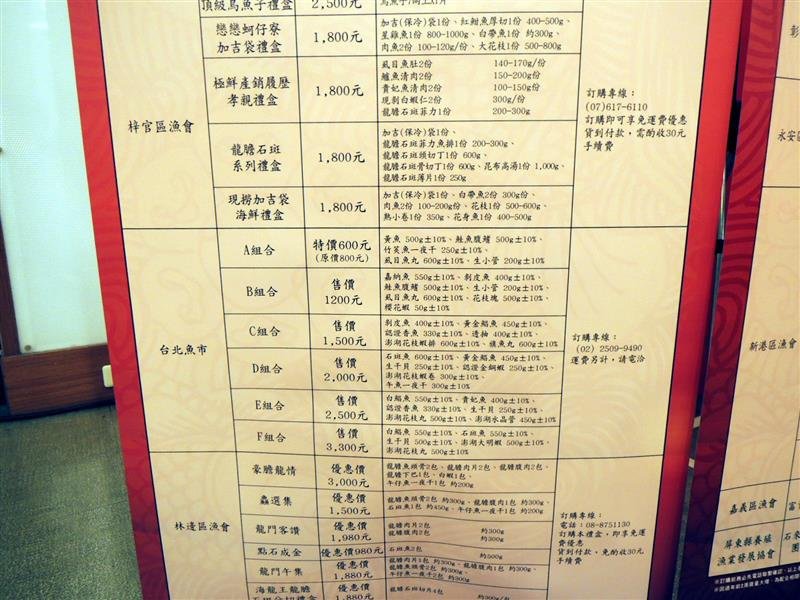 頂級烏魚子禮盒 2,500元
戀戀蚵仔寮
加吉袋禮盒
1,800元
加吉(保冷)袋1份、紅魽魚厚切1份 400-500g、
星雞魚1份 800-1000g、白帶魚1份 約300g、
肉魚2份 100-120g/份、大花枝1份 500-800g
梓官區漁會
極鮮產銷履歷
孝親禮盒
1,800元
虱目魚肚2份 140-170g/份
鱸魚清肉2份 150-200g/份
貴妃魚清肉2份 100-150g/份
現剝白蝦仁2份 300g/份
龍膽石斑菲力1份 200-300g
訂購專線：
(07)617-6110
訂購即可享免運費優惠
貨到付款，需酌收30元
手續費
龍膽石斑
系列禮盒
1,800元
加吉(保冷)袋1份、
龍膽石斑菲力魚排1份 200-300g、
龍膽石斑頭切丁1份 600g、
龍膽石斑骨切丁1份 600g、昆布高湯1份 1,000g、
龍膽石斑薄片1份 250g
現撈加吉袋
海鮮禮盒
1,800元
加吉(保冷)袋1份、白帶魚2份 300g/份、
肉魚2份 100-200g/份、花枝1份 500-600g、
熟小卷1份 350g、花身魚1份 400-500g
台北魚市
A組合
特價600元
(原價800元)
黃魚 500g±10%、鮭魚腹鰭 500g±10%、
竹筴魚一夜干 250g±10%、
虱目魚丸 600g±10%、生小管 200g±10%
B組合
售價
1200元
嘉納魚 550g±10%、剝皮魚 400g±10%、
鮭魚腹鰭 500g±10%、生小管 200g±10%、
虱目魚丸 600g±10%、花枝塊 500g±10%、
櫻花蝦 50g±10%
C組合
售價
1,500元
剝皮魚 400g±10%、黃金鯧魚 450g±10%、
認證香魚 330g±10%、透抽 400g±10%、
澎湖花枝蝦排 600g±10%、旗魚丸 600g±10%
訂購專線：
(02) 2509-9490
運費另計，請電洽
D組合
售價
2,000元
石斑魚 600g±10%、黃金鯧魚 450g±10%、
生干貝 250g±10%、認證金鉤蝦 250g±10%、
澎湖花枝蝦卷 300g±10%、
午魚一夜干 300g±10%
E組合
售價
2,500元
白鯧魚 550g±10%、貴妃魚 400g±10%、
認證香魚 330g±10%、生干貝 250g±10%、
澎湖花枝丸 500g±10%、澎湖水晶管 450g±10%
F組合
售價
3,300元
白鯧魚 550g±10%、石斑魚 550g±10%、
生干貝 500g±10%、澎湖大明蝦 500g±10%、
澎湖花枝丸 500g±10%
林邊區漁會
豪膽龍情
優惠價
3,000元
龍膽魚頭骨2包、龍膽肉片2包、龍膽腹肉2包、
龍膽下巴1包、白蝦1包、
午仔魚一夜干1包 約200g
鱻選集
優惠價
1,500元
龍膽魚頭骨2包 約300g、龍膽腹肉1包 約300g、
石斑魚1包 約450g、午仔魚一夜干1包 約200g
龍門客讚
優惠價
1,980元
龍膽肉片2包 約300g
龍膽腹肉2包 約300g
訂購專線：
電話：08-8751130
訂購本禮盒，即享免運
費優惠
貨到付款，免酌收30元
手續費
點石成金 優惠價980元 石斑魚2包 約500g
龍門午集
優惠價
1,880元
龍膽肉片1包 約300g、龍膽腹肉1包 約300g、
龍膽魚頭骨2包 約300g、
午仔魚一夜干2包 約300g
海龍王龍膽
優惠價
1,880元
龍膽石斑切片4包 約300g/包
彰
永安區
新港區漁會
嘉義區漁會
屏東縣養殖
漁業發展協會